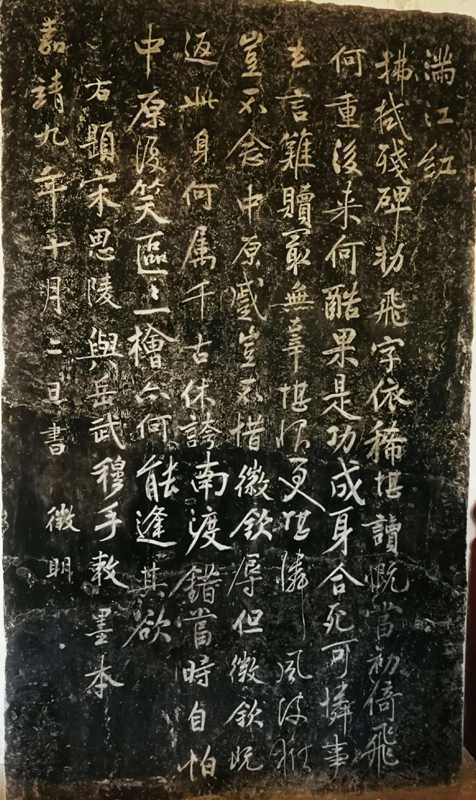 滿江紅
拂拭殘碑勅飛字依稀堪讀慨當初倚飛
何重後来何酷果是功成身合死可憐事
去言難贖最無辜堪恨更堪憐風波獄
豈不念中原蹙豈不惜徽欽辱但徽欽既
返此身何属千古休誇南渡錯當時自怕
中原復笑區〻一檜亦何能逢其欲
右題宋思陵與岳武穆手敕墨本
嘉靖九年十月二日書 徵明